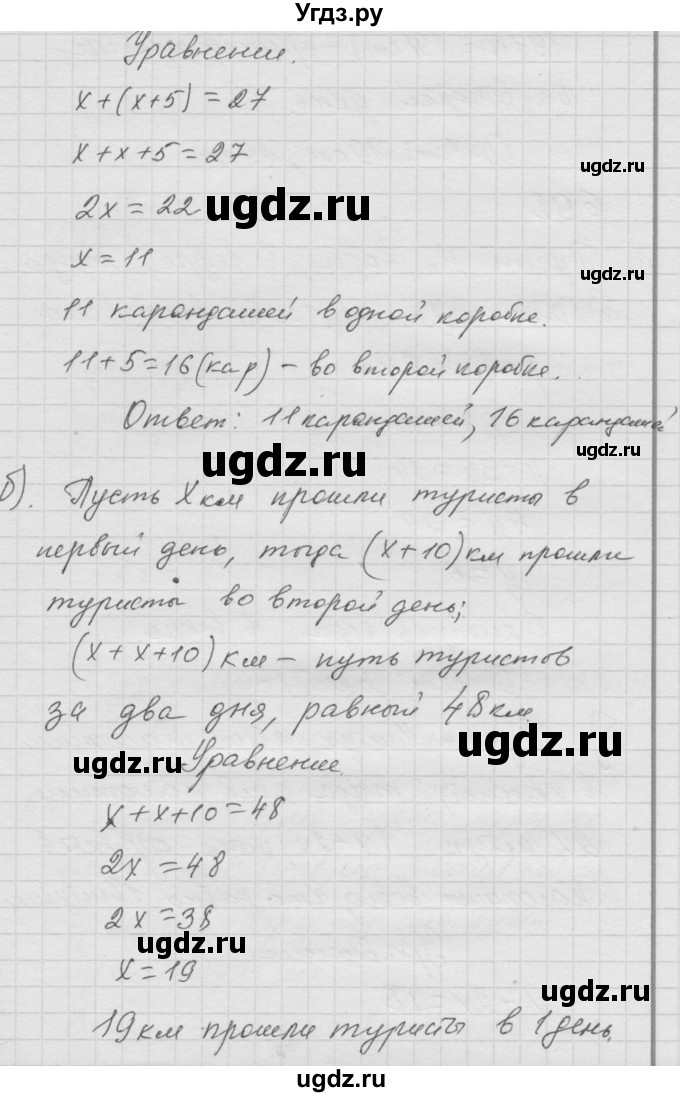 Угдз.ру
Уравнение.
x+(x+5)=27
x+x+5=27
ugdz.ru
2x=22
ugdz.ru
x=11
ugdz.ru
11 карандашей в одной коробке.
11+5=16(кар) - во второй коробке.
Ответ: 11 карандашей, 16 карандашей
ugdz.ru
ugdz.ru
б). Пусть x км прошли туристы в
первый день, тогда (x+10) км прошли
туристы во второй день;
(x+x+10) км - путь туристов
за два дня, равный 48 км.
ugdz.ru
ugdz.ru
Уравнение.
x+x+10=48
2x=48
2x=38
ugdz.ru
x=19
ugdz.ru
19 км прошли туристы в 1 день.
ugdz.ru